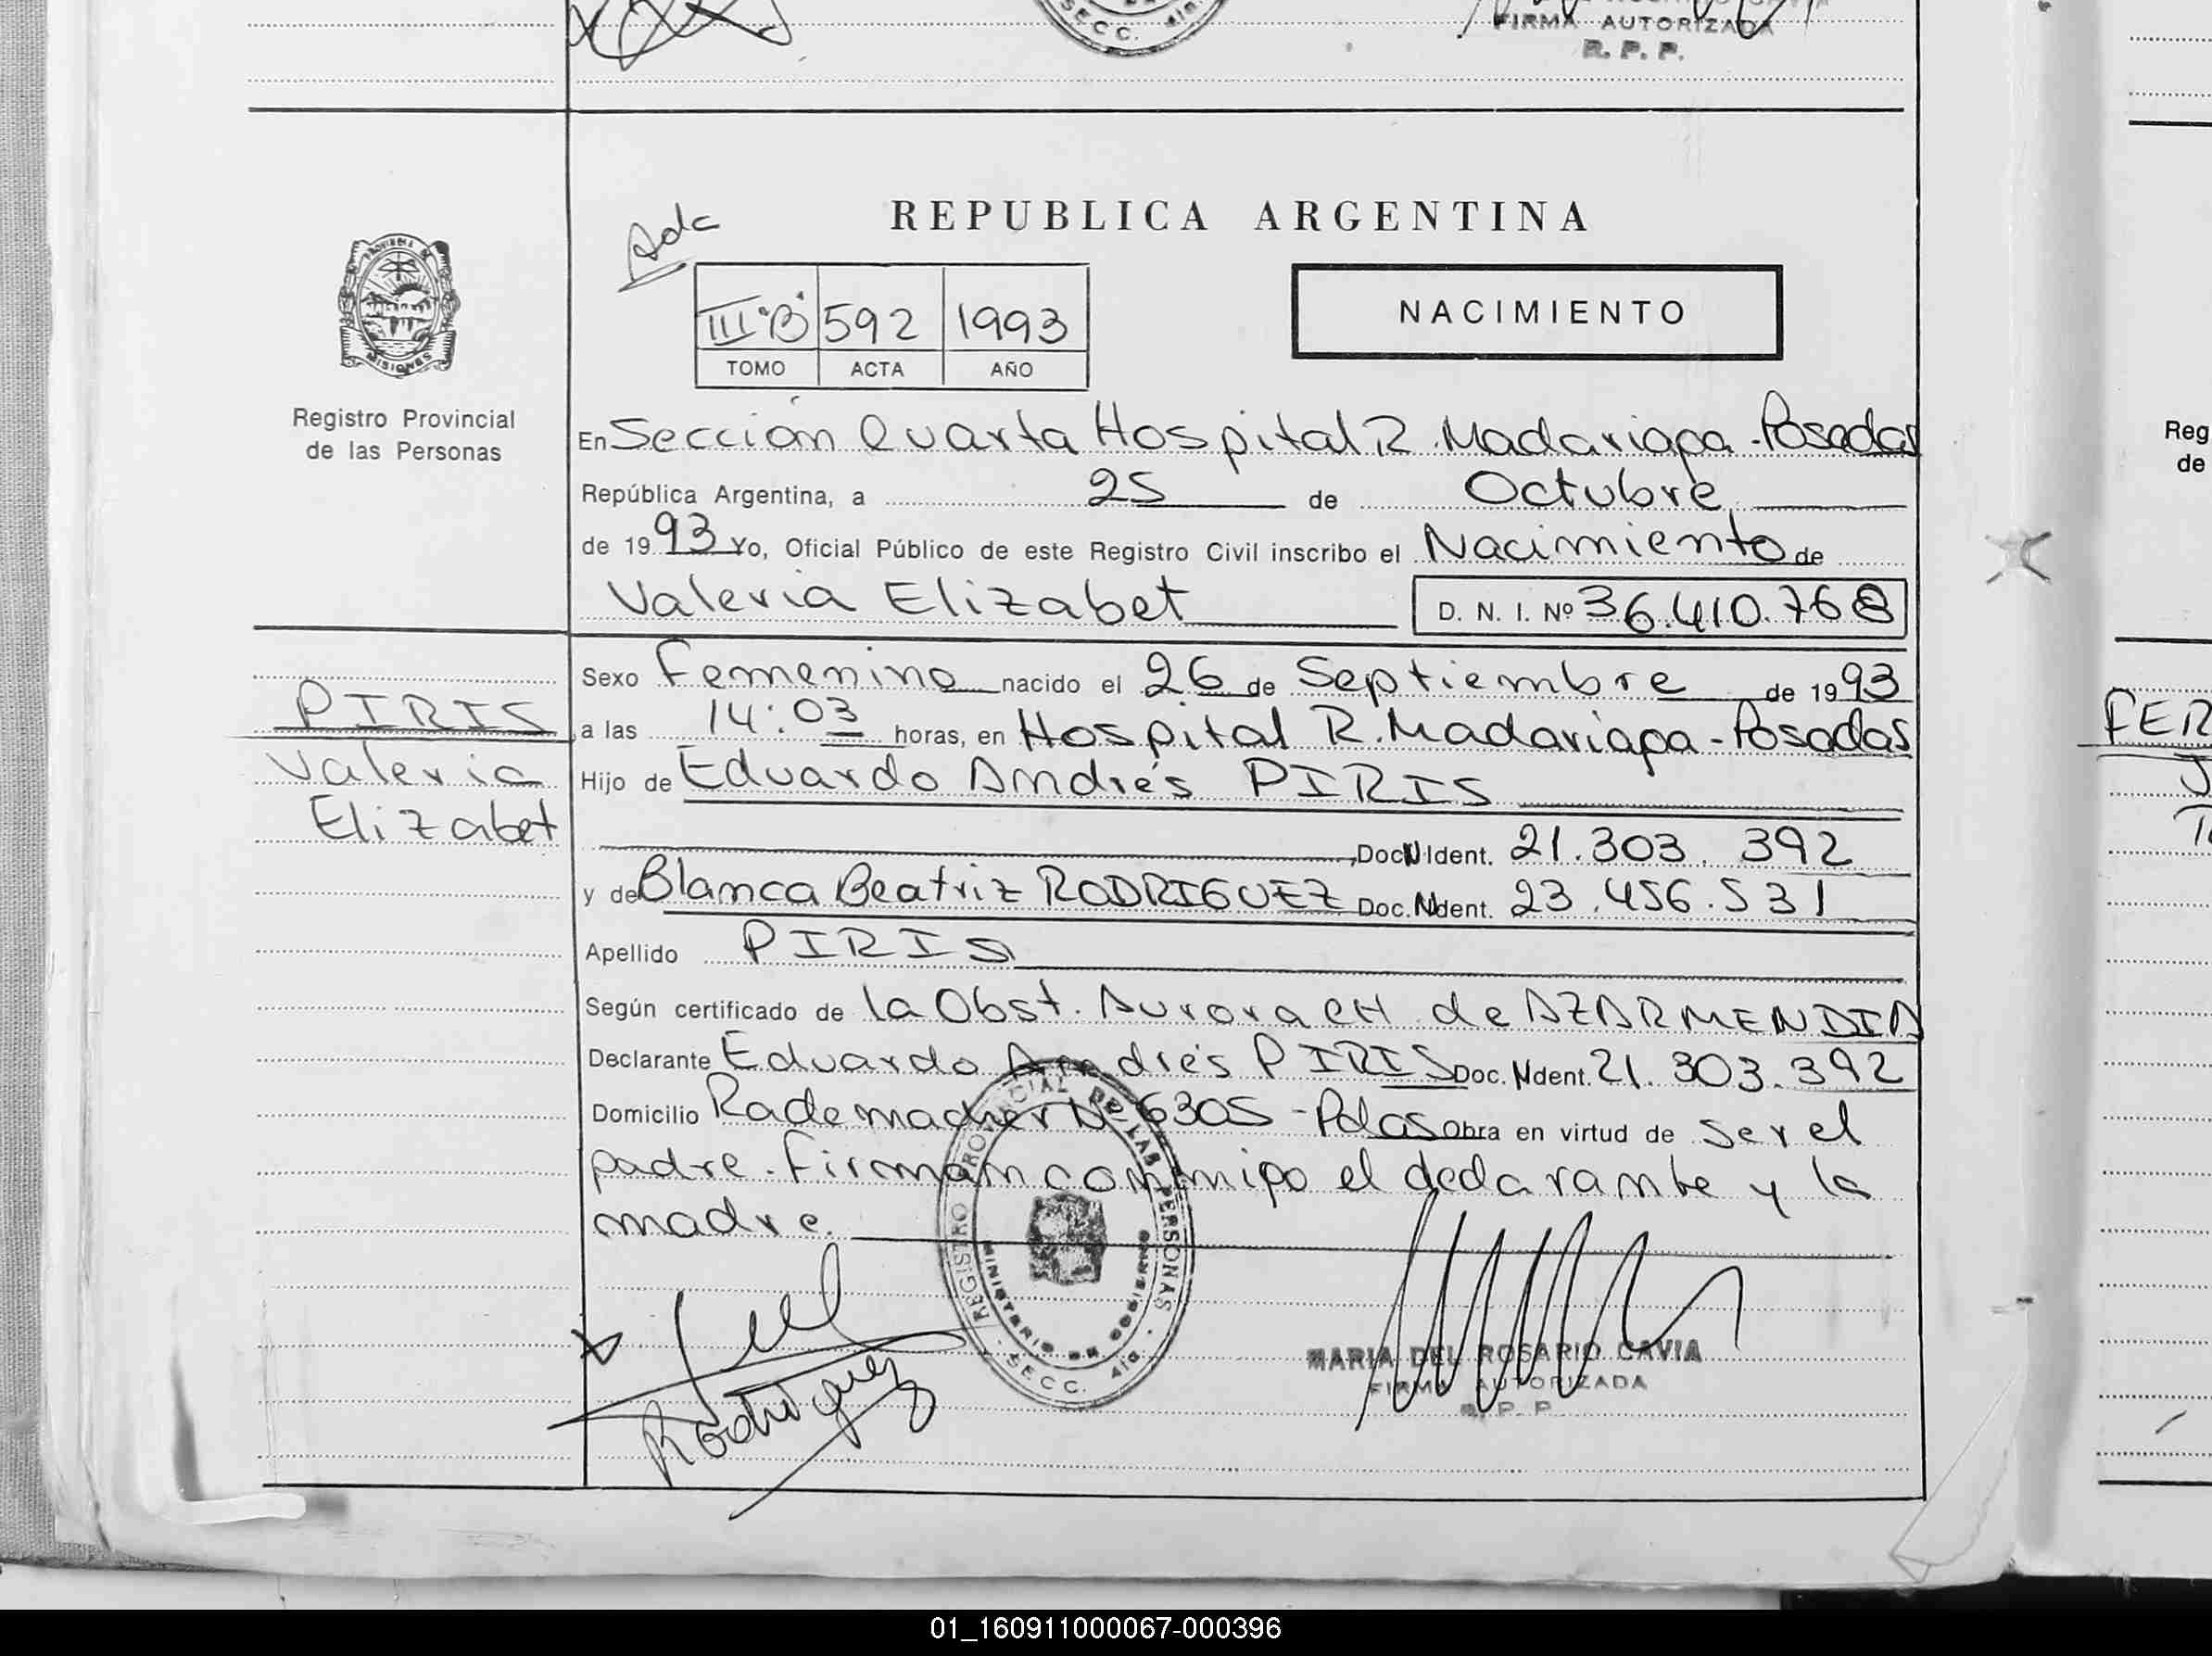 SECC. 4ta.
FIRMA AUTORIZADA
R. P. P.
REPUBLICA ARGENTINA
PROVINCIA DE
MISIONES
Registro Provincial
de las Personas
III "B" 592 1993
TOMO ACTA AÑO
NACIMIENTO
En Sección Cuarta Hospital R. Madariaga - Posadas
República Argentina, a 25 de Octubre
de 1993 Yo, Oficial Público de este Registro Civil inscribo el Nacimiento de
Valeria Elizabet D. N. I. Nº 36.410.768
Sexo Femenino nacido el 26 de Septiembre de 1993
PIRIS
Valeria
Elizabet
a las 14:03 horas, en Hospital R. Madariaga - Posadas
Hijo de Eduardo Andrés PIRIS
Doc. N Ident. 21.303.392
y de Blanca Beatriz RODRIGUEZ Doc. Ident. 23.456.531
Apellido PIRIS
Según certificado de la Obst. Aurora CH de AZARMENDIA
Declarante Eduardo Andrés PIRIS Doc. Ident. 21.303.392
Domicilio Rademacher Nº 6305 - Pdas Obra en virtud de ser el
padre. Firman conmigo el declarante y la
madre.
REGISTRO PROVINCIAL DE LAS PERSONAS
MINISTERIO DE GOBIERNO
SECC. 4ta
Rodriguez
MARIA DEL ROSARIO CAVIA
FIRMA AUTORIZADA
R. P. P.
Reg
de
FER
J
01_160911000067-000396